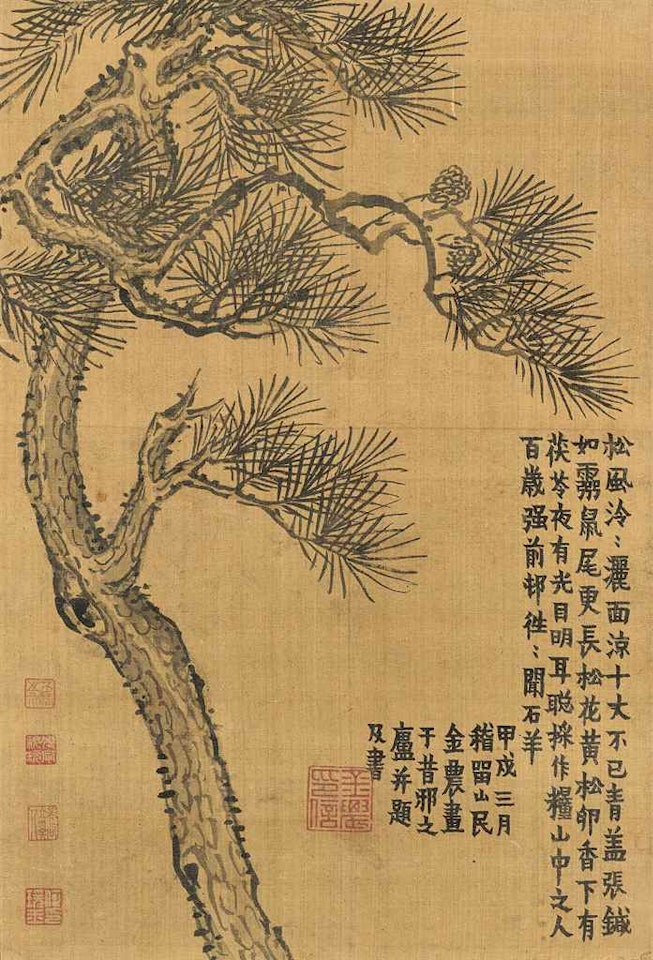 松風泠〻灑面涼十丈不已青盖張鍼
如鼠尾更長松花黃松卵香下有
茯苓夜有光目明耳聡採作糧山中之人
百歲强前邨徃〻聞石羊
甲戌三月
稽畱山民
金農畫
于昔邪之
廬并題
及書
金農印信